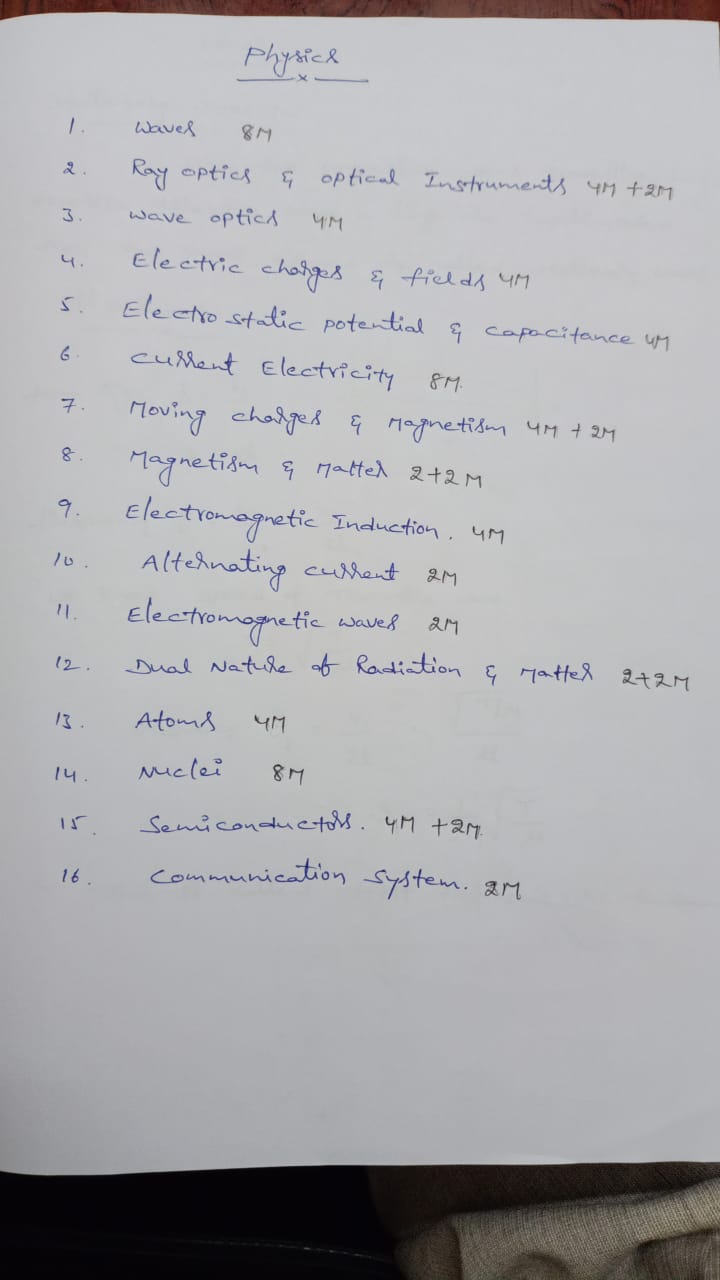 Physics
1. Waves 8M
2. Ray optics & optical Instruments 4M +2M
3. Wave optics 4M
4. Electric charges & fields 4M
5. Electro static potential & capacitance 4M
6. Current Electricity 8M.
7. Moving charges & Magnetism 4M + 2M
8. Magnetism & Matter 2+2M
9. Electromagnetic Induction. 4M
10. Alternating current 2M
11. Electromagnetic waves 2M
12. Dual Nature of Radiation & Matter 2+2M
13. Atoms 4M
14. Nuclei 8M
15. Semiconductors. 4M +2M.
16. Communication System. 2M